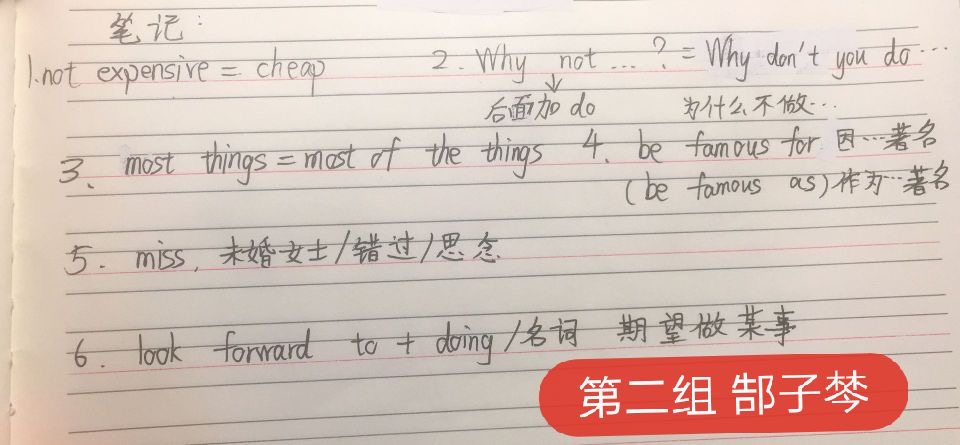 笔记:
1. not expensive = cheap 2. Why not ... ? = Why don't you do ...
↓
后面加 do 为什么不做...
3. most things = most of the things 4. be famous for 因...著名
(be famous as) 作为...著名
5. miss. 未婚女士/错过/思念
6. look forward to + doing/名词 期望做某事
第二组 郜子棽